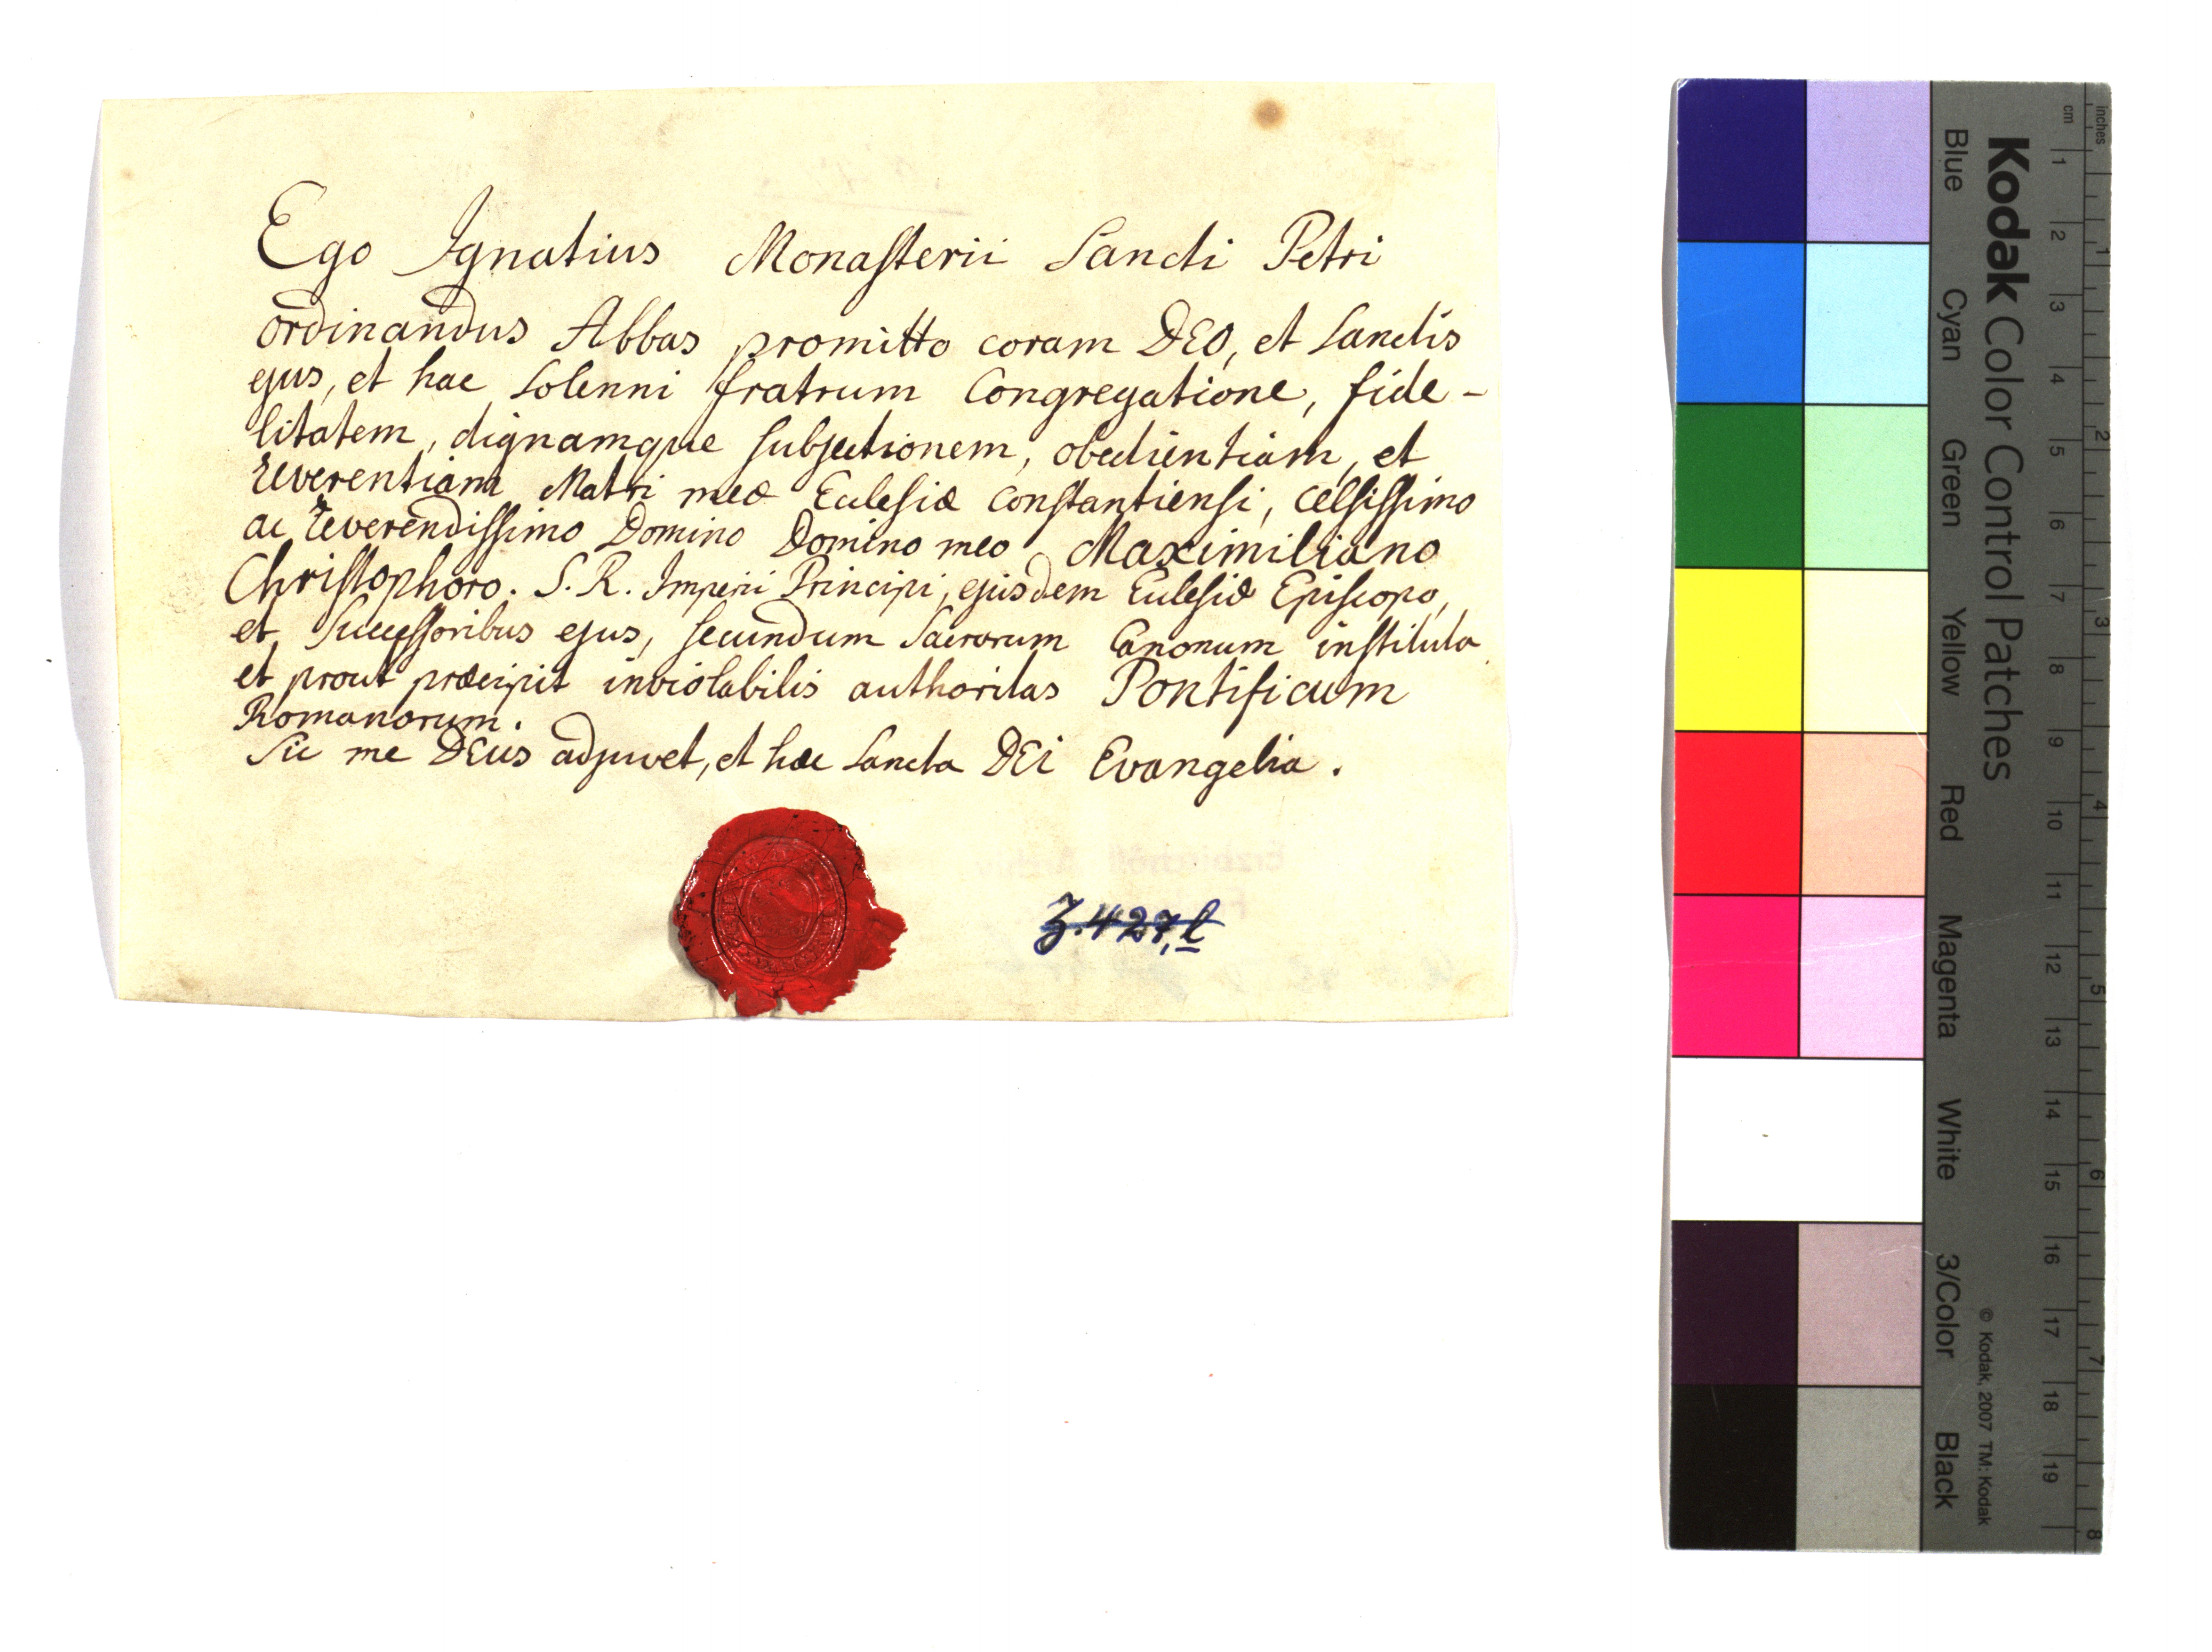 Ego Ignatius Monasterii Sancti Petri
ordinandus Abbas promitto coram DEO, et Sanctis
ejus, et hac Solenni fratrum Congregatione, fide-
litatem, dignamque subjectionem, obedientiam, et
reverentiam Matri meæ Ecclesiæ Constantiensi, Celsissimo
ac reverendissimo Domino Domino meo Maximiliano
Christophoro. S. R. Imperii Principi, ejusdem Ecclesiæ Episcopo,
et Successoribus ejus, secundum Sacrorum Canonum instituta
et prout præcipit inviolabilis authoritas Pontificum
Romanorum.
Sic me DEus adjuvet, et hæc Sancta DEi Evangelia.
Z. 427, l
Kodak Color Control Patches
Blue Cyan Green Yellow Red Magenta White 3/Color Black
© Kodak, 2007 TM: Kodak
cm 1 2 3 4 5 6 7 8 9 10 11 12 13 14 15 16 17 18 19
inches 1 2 3 4 5 6 7 8